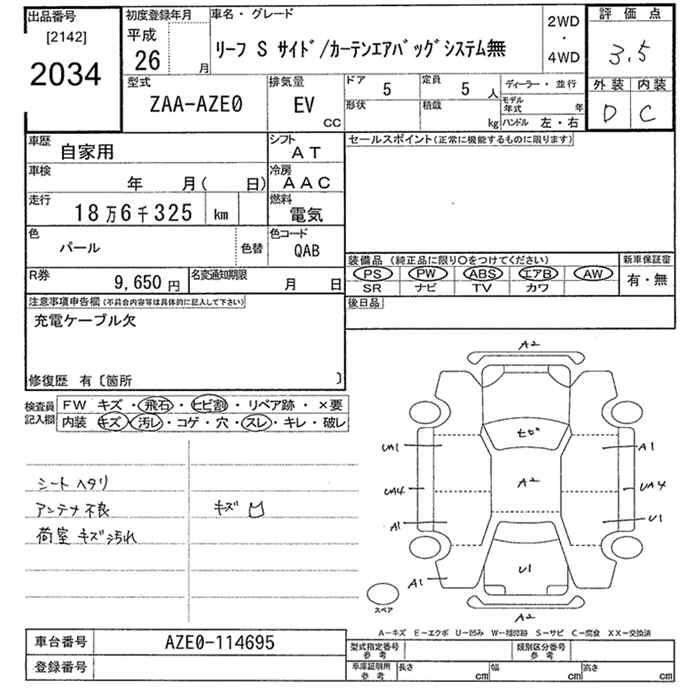 出品番号
[2142]
2034
初度登録年月
平成
26
月
車名・グレード
リーフ S サイド/カーテンエアバッグシステム無
2WD
・
4WD
評価点
3.5
外装 内装
D C
型式
ZAA-AZE0
排気量
EV
CC
ドア
5
定員
5 人
形状
積載
kg
ディーラー・並行
モデル年式
年
ハンドル 左・右
車歴
自家用
シフト
AT
セールスポイント(正常に機能するものに限ります)
車検
年 月( 日)
冷房
AAC
走行
18万6千325 km
燃料
電気
色
パール
色替
色コード
QAB
装備品 (純正品に限り〇をつけてください)
新車保証書
PS PW ABS エアB AW
SR ナビ TV カワ
有・無
R券
9,650 円
名変通知期限
月 日
後日品
注意事項申告欄(不具合内容等は具体的に記入して下さい)
充電ケーブル欠
修復歴 有〔箇所 〕
検査員
記入欄
FW キズ・飛石・ヒビ割・リペア跡・×要
内装 キズ・汚レ・コゲ・穴・スレ・キレ・破レ
シートヘタリ
アンテナ不良
キズ
荷室 キズ汚れ
A2
ヒビ
UA1
A1
UA4
A2
UA4
A1
U1
U1
A1
スペア
A2
A-キズ E-エクボ U-凹み W-補修跡 S-サビ C-腐食 XX-交換済
車台番号
AZE0-114695
登録番号
型式指定番号
参考
類別区分番号
参考
車庫証明用
参考
長さ
cm
幅
cm
高さ
cm